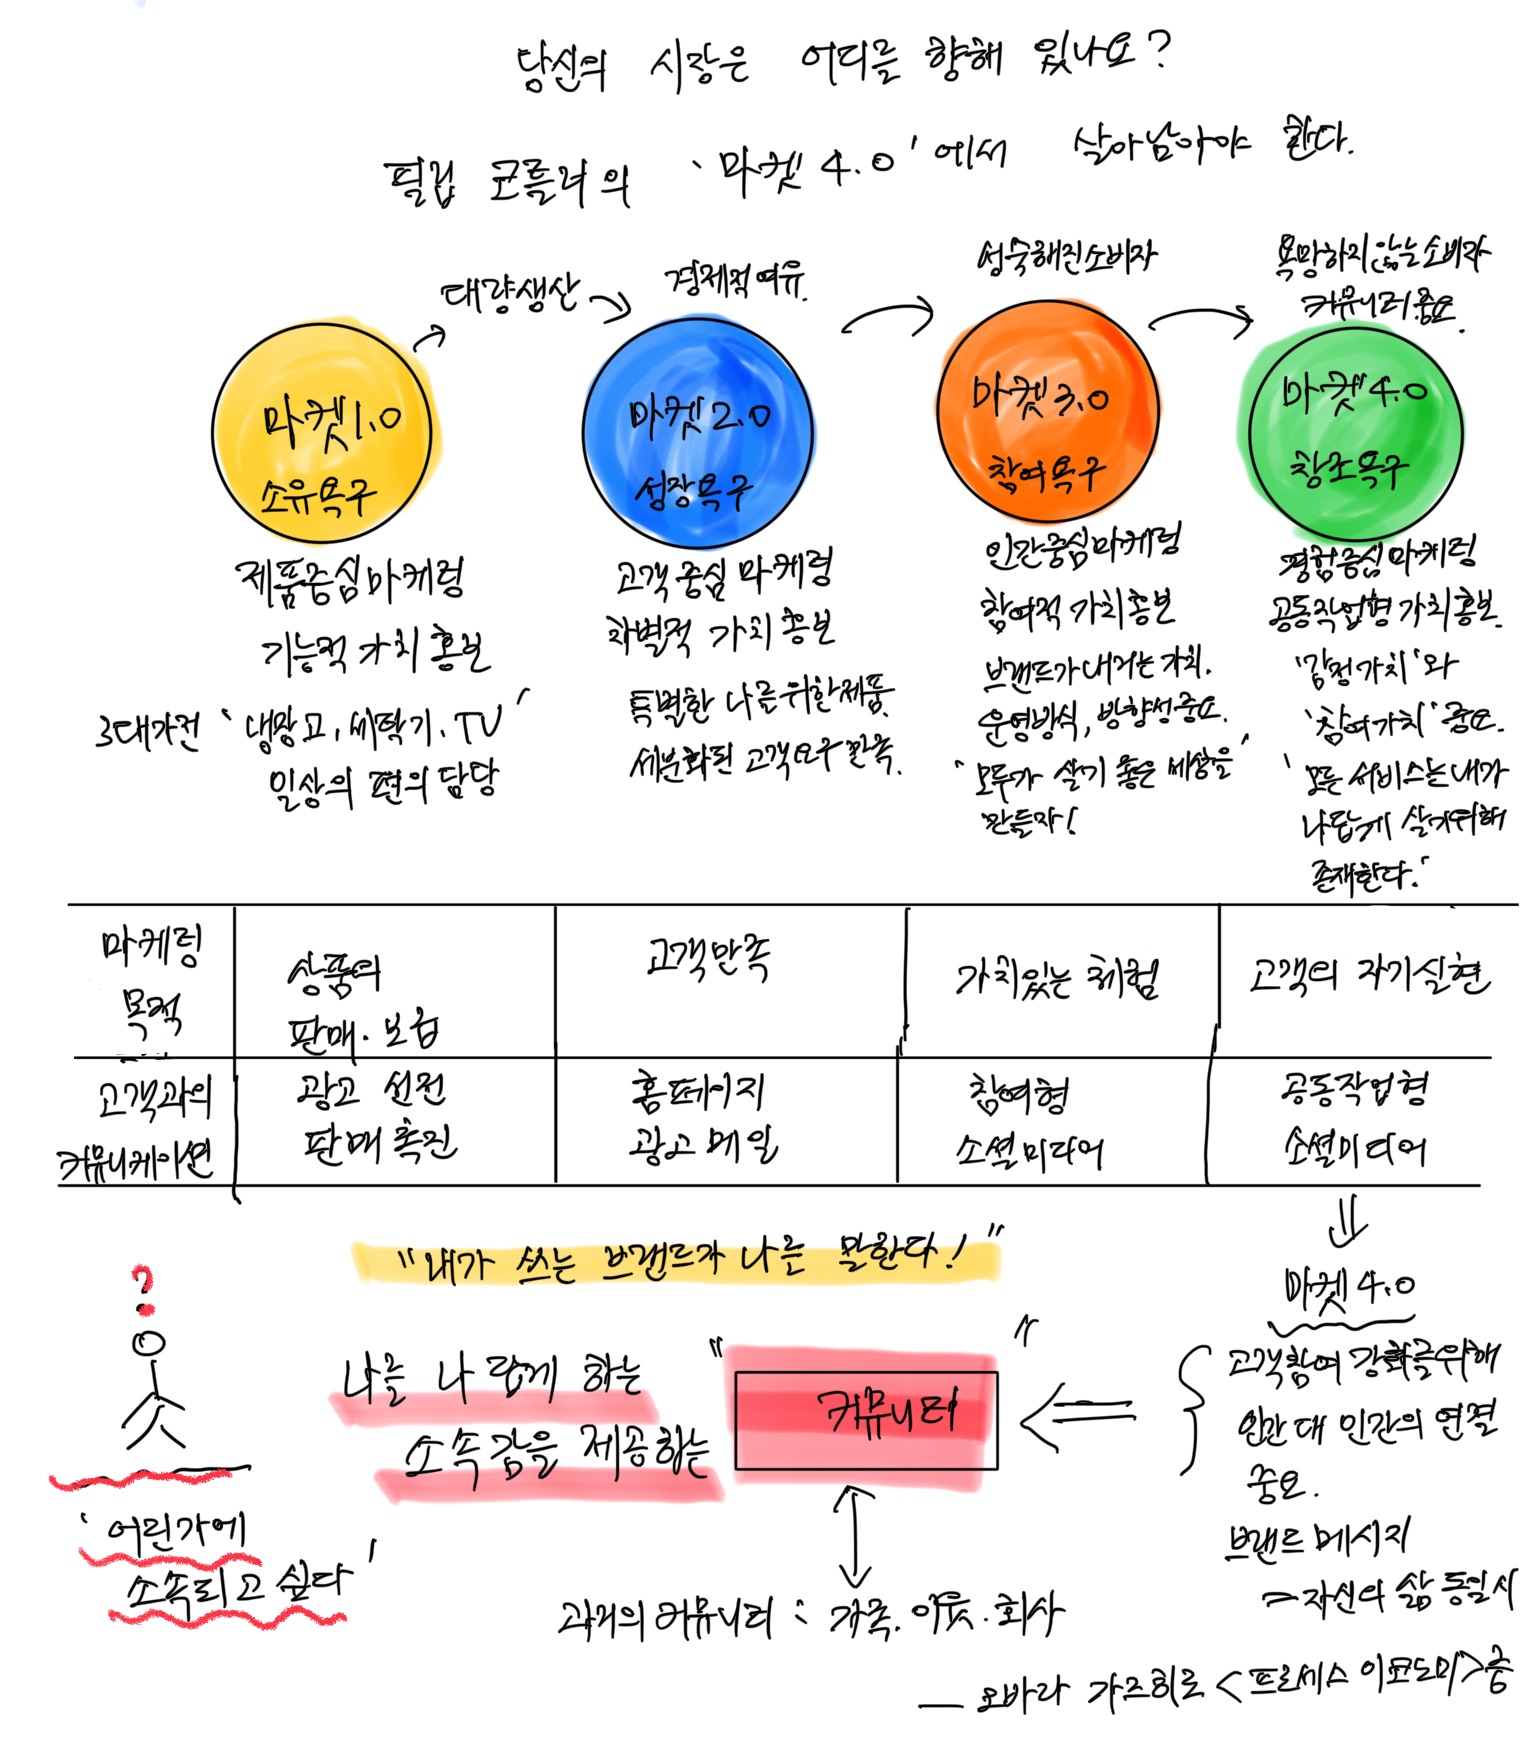 당신의 시장은 어디를 향해 있나요?
필립 코틀러의 '마켓 4.0'에서 살아남아야 한다.
대량생산
경제적여유.
성숙해진소비자
욕망하지않는소비자
커뮤니티중요.
마켓1.0
소유욕구
마켓2.0
성장욕구
마켓3.0
참여욕구
마켓4.0
창조욕구
제품중심마케팅
기능적 가치 홍보
3대가전 '냉장고, 세탁기, TV'
일상의 편의 담당
고객중심 마케팅
차별적 가치 홍보
특별한 나를위한제품.
세분화된 고객요구만족.
인간중심마케팅
참여적 가치홍보
브랜드가내거는 가치.
운영방식, 방향성중요.
'모두가 살기 좋은 세상을
만들자!'
경험중심마케팅
공동작업형가치홍보.
'감정가치'와
'참여가치'중요.
'모든 서비스는내가
나답게 살기위해
존재한다.'
마케팅
목적
상품의
판매·보급
고객만족
가치있는 체험
고객의 자기실현
고객과의
커뮤니케이션
광고 선전
판매촉진
홈페이지
광고메일
참여형
소셜미디어
공동작업형
소셜미디어
"내가 쓰는 브랜드가 나를 말한다!"
?
'어딘가에
소속되고 싶다'
나를 나 답게 하는
소속감을 제공하는
"커뮤니티"
과거의커뮤니티 : 가족. 이웃. 회사
마켓4.0
고객참여 강화를위해
인간 대 인간의 연결
중요.
브랜드 메시지
자신의 삶 동일시
— 오바라 가즈히로 <프로세스 이코노미>중